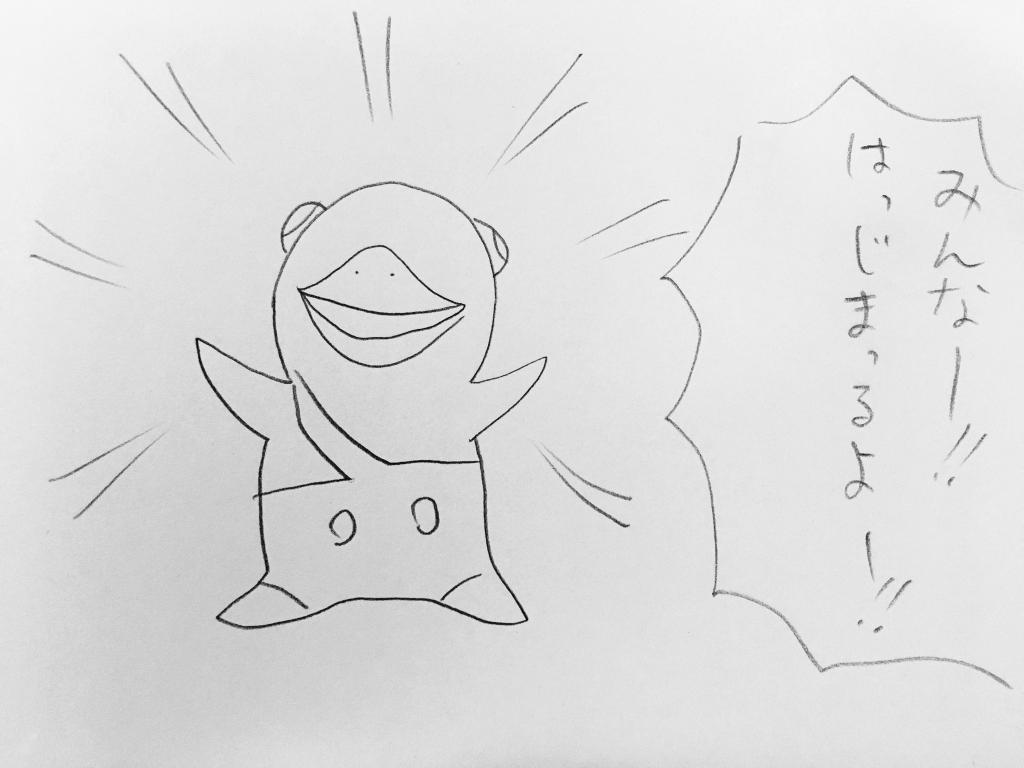 みんなー!!
はっじまっるよー!!